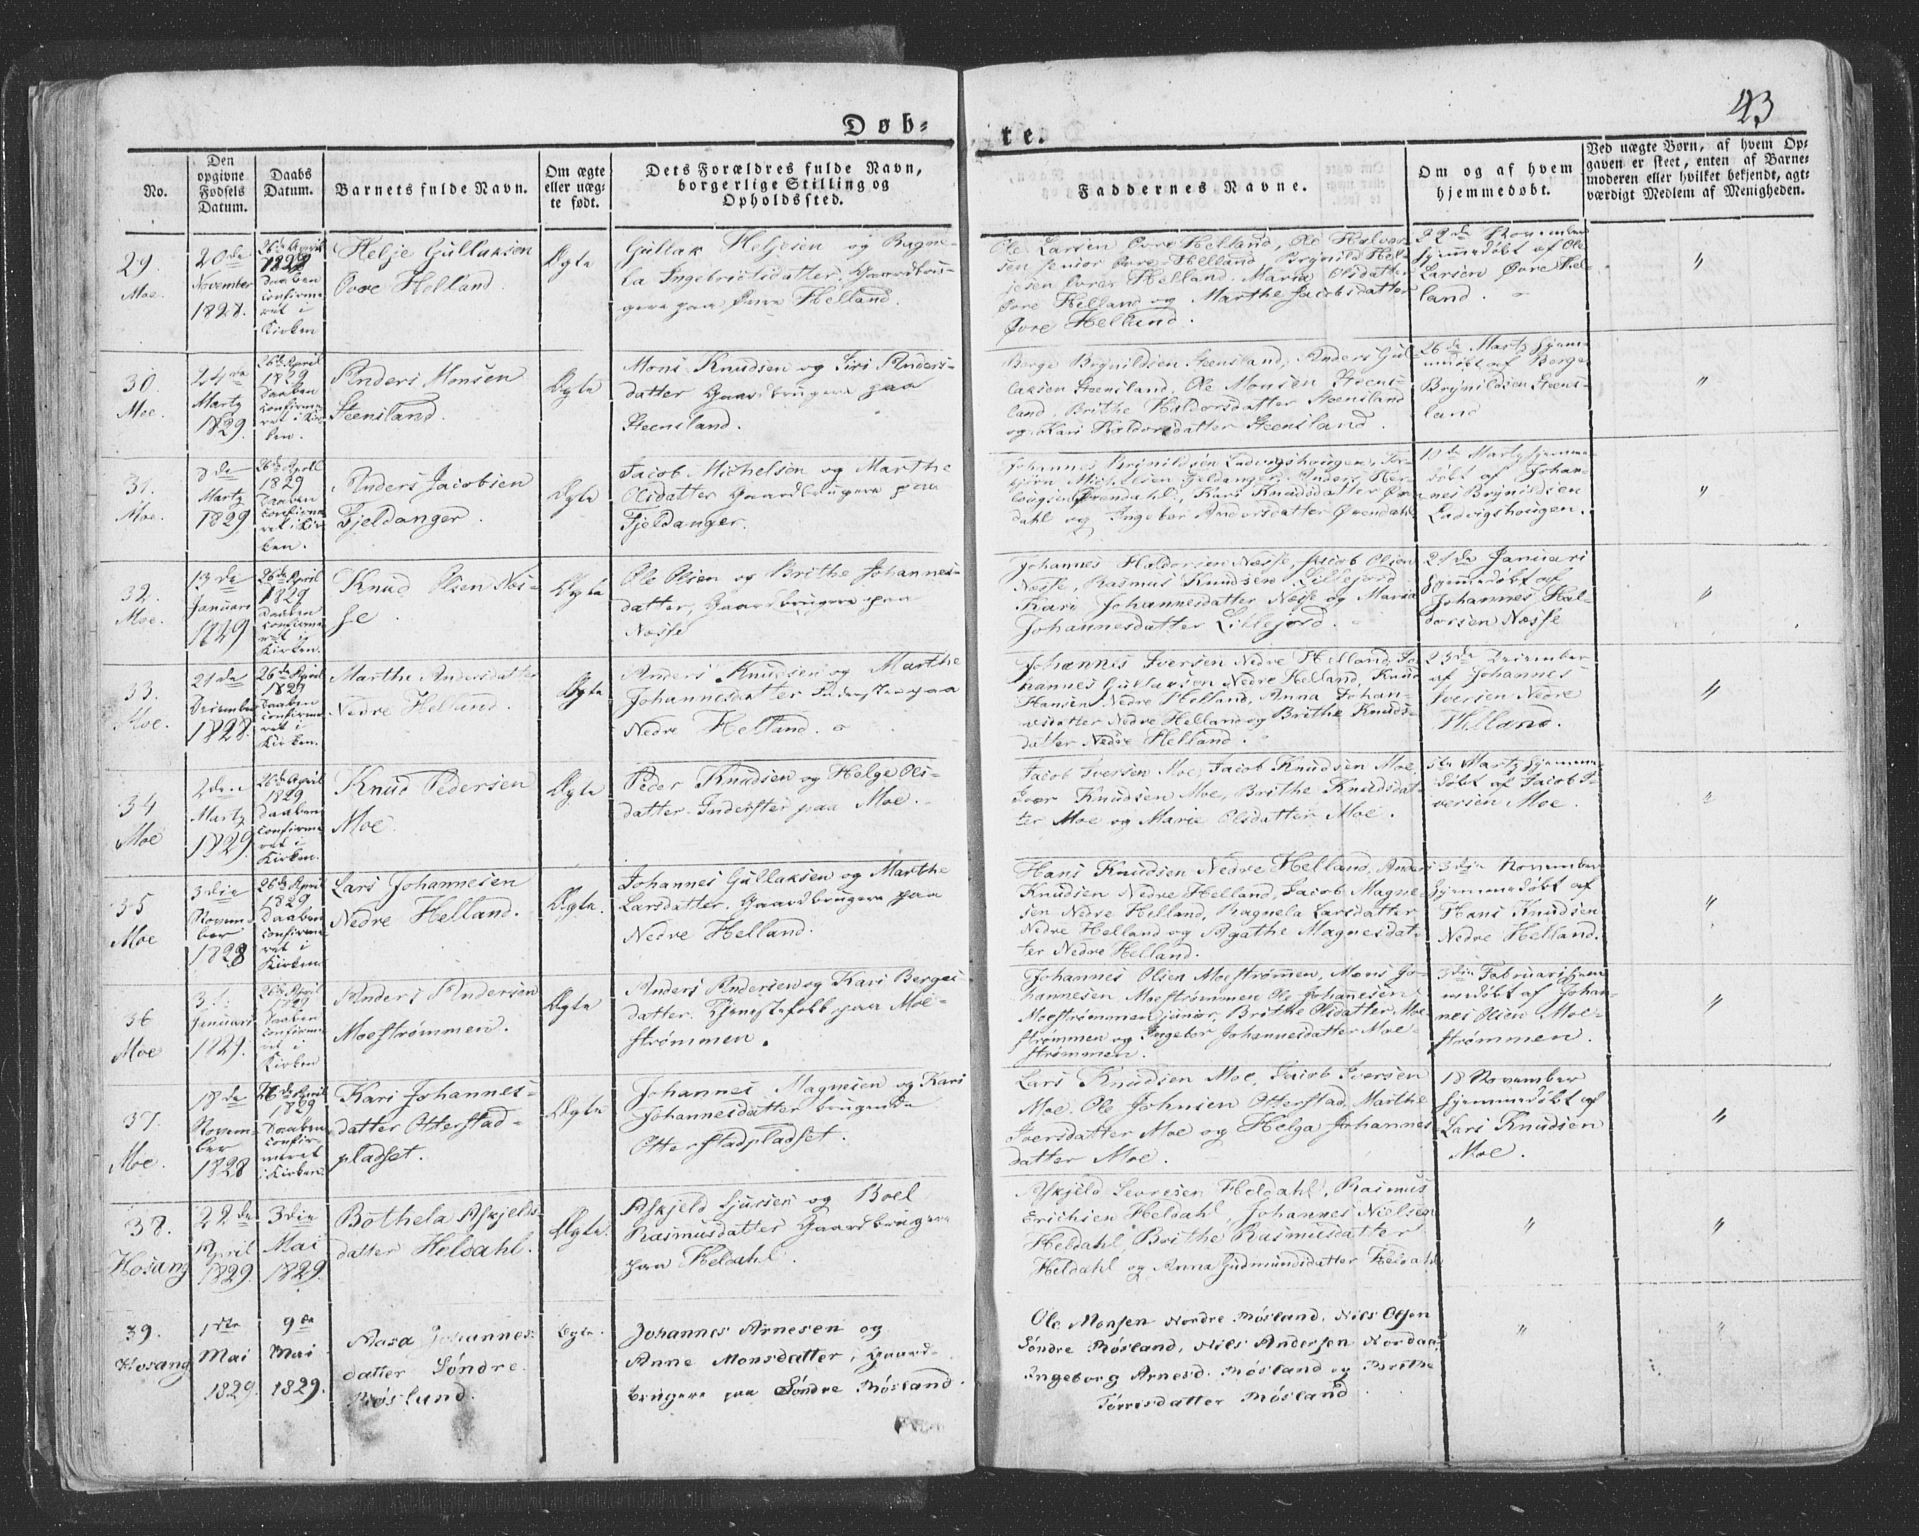 43
Døb-
te.
No.
Den
opgivne
Fødsels
Datum.
Daabs
Datum.
Barnets fulde Navn.
Om ægte
eller uæg-
te født.
Dets Forældres fulde Navn,
borgerlige Stilling og
Opholdssted.
Faddernes Navne.
Om og af hvem
hjemmedøbt.
Ved uægte Børn, af hvem Op-
gaven er skeet, enten af Barne-
moderen eller hvilket bekjendt, agt-
værdigt Medlem af Menigheden.
29.
Moe.
20de
November
1828.
26de April
1829
Daaben
confirme
ret i
Kirken
Helje Gullaksen
Øvre Helland.
Ægte
Gullak Heljesen og Ragne-
la Ingebrigtsdatter, Gaardbru-
gere paa Øvre Helland.
Ole Larsen Øvre Helland, Ole Halvor-
sen junior Øvre Helland, Brynild Hel-
jesen Øvre Helland, Maria Olsdatter
Øvre Helland og Marthe Jacobsdatter
Øvre Helland.
22de November
hjemmedøbt af Ole
Larsen Øvre Hel-
land.
"
30.
Moe.
24de
Martz
1829.
26de April
1829
Daaben
confirme
ret i Kir
ken.
Anders Monsen
Steensland.
Ægte
Mons Knudsen og Siri Anders-
datter Gaardbrugere paa
Steensland.
Børge Brynildsen Steensland, Anders Gul-
laksen Steensland, Ole Monsen Steens-
land, Brithe Haldorsdatter Steensland
og Kari Haldorsdatter Steensland.
26de Martz hjem-
medøbt af Børge
Brynildsen Steens-
land
"
31.
Moe.
8de
Martz
1829.
26de April
1829
Daaben
confirme
ret i Kir
ken.
Anders Jacobsen
Fjeldanger.
Ægte
Jacob Michelsen og Marthe
Olsdatter Gaardbrugere paa
Fjeldanger.
Johannes Brynildsen Ludvigshougen, Tor-
bjørn Michelsen Fjeldanger, Anders Her-
lougsen Øvendahl, Kari Knudsdatter Øven-
dahl og Ingebor Andersdatter Øvendahl
Martz hjemme-
døbt af Johan-
nes Brynildsen
Ludvigshougen.
"
32.
Moe.
13de
Januari
1829
26de April
1829
Daaben
confirme
ret i
Kirken.
Knud Olsen Næs-
se.
Ægte
Ole Olsen og Brithe Johannes-
datter, Gaardbrugere paa
Næsse
Johannes Haldorsen Næsse, Jacob Olsen
Næsse, Rasmus Knudsen Lillefjord
Kari Johannesdatter Næsse og Maria
Johannesdatter Lillejord.
21de Januari
hjemmedøbt af
Johannes Hal-
dorsen Næsse
"
33.
Moe.
21de
December
1828.
26de April
1829
Daaben
confirme
ret i
Kirken.
Marthe Andersdatter
Nedre Helland.
Ægte
Anders Knudsen og Marthe
Johannesdatter Inderster paa
Nedre Helland.
Johannes Iversen Nedre Helland, Jo-
hannes Gullaksen Nedre Helland, Knud
Hansen Nedre Helland, Anna Johan-
nesdatter Nedre Helland og Brithe Knuds-
datter Nedre Helland.
23de December
af Johannes
Iversen Nedre
Helland.
"
34
Moe
2den
Martz
1829.
26de April
1829
Daaben
confirme
ret i
Kirken.
Knud Pedersen
Moe.
Ægte
Peder Knudsen og Helge Ols-
datter. Inderster paa Moe.
Jacob Iversen Moe, Jacob Knudsen Moe,
Iver Knudsen Moe, Brithe Knudsdat-
ter Moe og Marie Olsdatter Moe.
5te Martz hjemme-
døbt af Jacob I-
versen Moe.
"
35
Moe
3die
Novem-
ber
1828
26de April
1829
Daaben
confirme
ret i
Kirken
Lars Johannesen
Nedre Helland.
Ægte.
Johannes Gullaksen og Marthe
Larsdatter. Gaardbrugere paa
Nedre Helland.
Hans Knudsen Nedre Helland, Anders
Knudsen Nedre Helland, Jacob Magne-
sen Nedre Helland, Ragnela Larsdatter
Nedre Helland og Agathe Magnesdat-
ter Nedre Helland.
3die November
hjemmedøbt af
Hans Knudsen
Nedre Helland.
"
36
Moe
Januari
1829.
26de April
1829
Daaben
confirme
ret i
Kirken
Anders Andersen
Moestrømmen.
Ægte
Anders Andersen og Kari Børges-
datter. Tjenestefolk paa Moe-
strømmen.
Johannes Olsen Moestrømmen, Mons Jo-
hannesen Moestrømmen Ole Johanesen
Moestrømmen junior, Brithe Olsdatter Moe-
strømmen og Ingebor Johannesdatter Moe-
strømmen.
3die Februari hjem
medøbt af Johan-
nes Olsen Moe-
strømmen.
"
37.
Moe.
18de
Novem-
ber
1828
26de April
1829
Daaben
confir-
meret
i Kirken.
Kari Johannes-
datter Otterstad-
pladset.
Ægte
Johannes Magnesen og Kari
Johannesdatter brugende
Otterstadpladset.
Lars Knudsen Moe, Jacob Iversen
Moe. Ole Johnsen Otterstad, Marthe
Iversdatter Moe og Helga Johannes
datter Moe.
18 November
hjemmedøbt af
Lars Knudsen
Moe.
"
38.
Hosang
22de
April
1829.
3die
Mai
1829.
Bothela Askjelds-
datter Heldahl.
Ægte.
Askjeld Sjursen og Boel
Rasmusdatter Gaardbrugere
paa Heldahl.
Askjeld Sevresen Heldahl, Rasmus
Erichsen Heldahl, Johannes Nielsen
Heldahl, Brithe Rasmusdatter
Heldahl og Anna Gudmundsdatter Heldahl
"
"
39.
Hosang
1ste
Mai
1829.
9de
Mai
1829.
Aasa Johannes-
datter Søndre
Røsland.
Ægte.
Johannes Arnesen og
Anne Monsdatter, Gaard-
brugere paa Søndre Røsland.
Ole Monsen Nordre Røsland, Nils Olsen
Søndre Røsland, Nils Andersen Nordaas,
Ingeborg Arnesd. Røsland og Brithe
Tørrisdatter Røsland
"
"